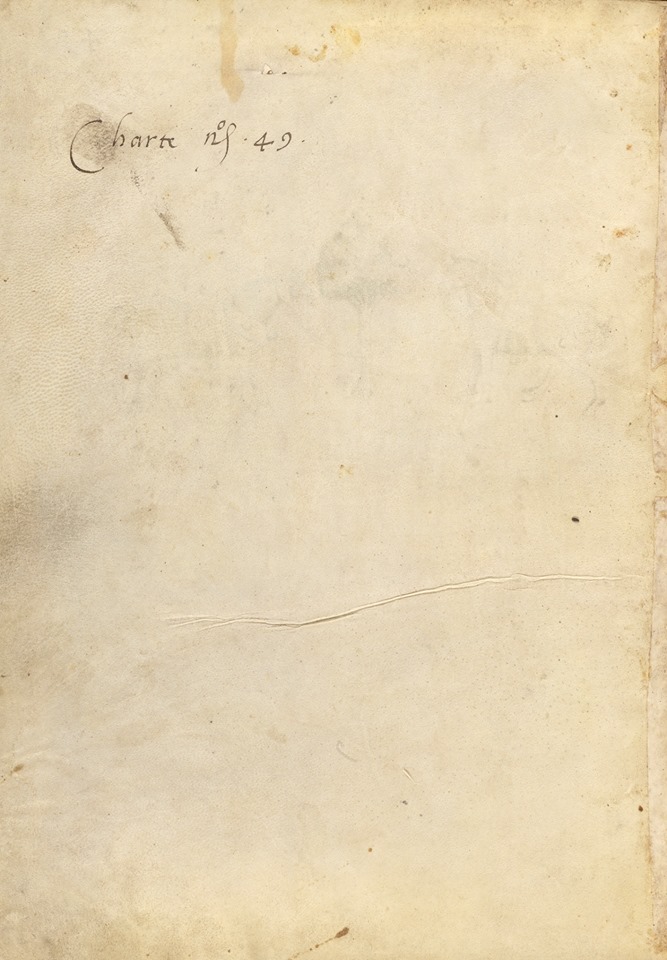 Charte nº. 49.